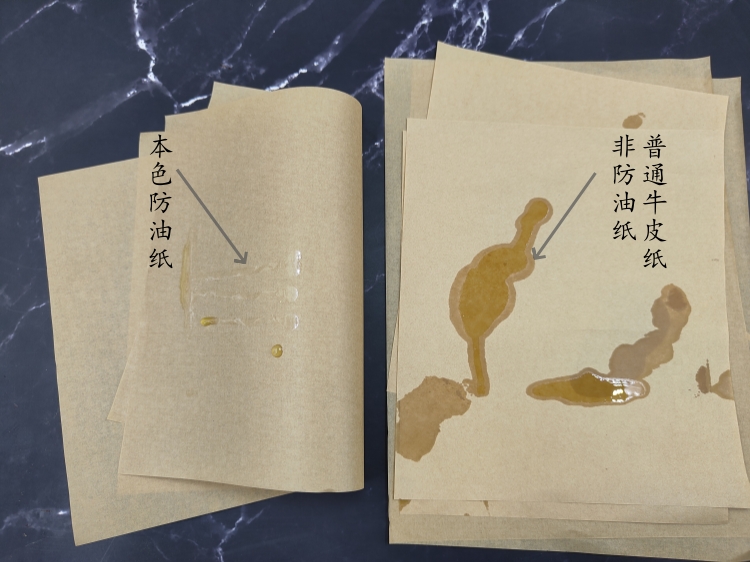 本色防油纸
普通牛皮纸
非防油纸